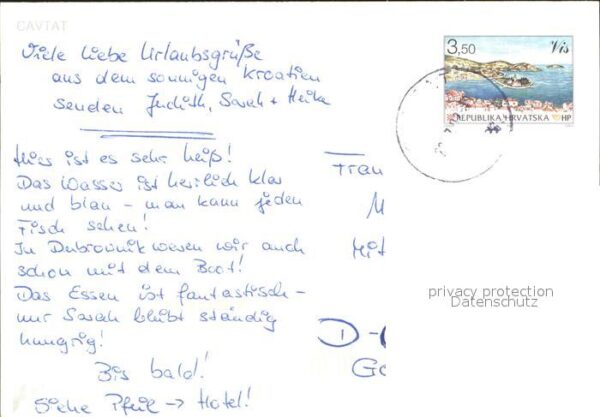 CAVTAT
Viele liebe Urlaubsgrüße
aus dem sonnigen Kroatien
senden Judith, Sarah + Heika
3,50 Vis
REPUBLIKA HRVATSKA HP
Hier ist es sehr heiß!
Das Wasser ist herrlich klar
und blau - man kann jeden
Fisch sehen!
In Dubrovnik waren wir auch
schon mit dem Boot!
Das Essen ist fantastisch -
nur Sarah bleibt ständig
hungrig!
Bis bald!
Siehe Pfeil → Hotel!
Frau
M
Mit
privacy protection
Datenschutz
D-
Go